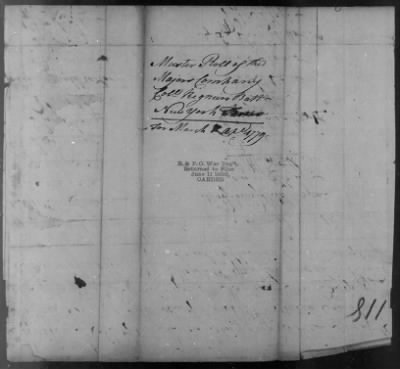 Muster Roll of the
Majors Company
Coll Regnier Batt
New York
for March & Apl 1779
R. & P. O. War Dep't,
Returned to Files
June 11
CARDED
118